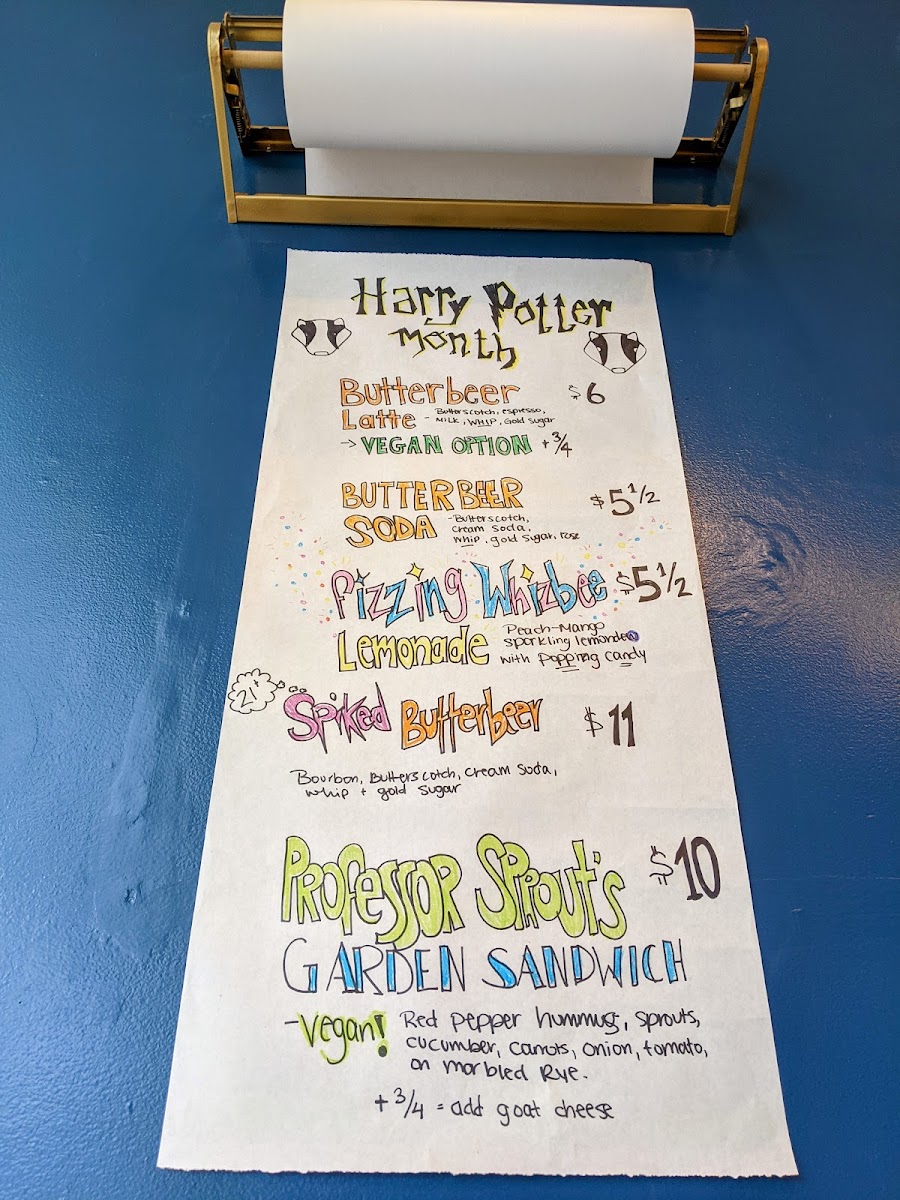 Harry Potter
Month
Butterbeer $6
Latte - Butterscotch, espresso,
milk, WHIP, Gold Sugar
→ VEGAN OPTION + 3/4
BUTTERBEER $5 1/2
SODA - Butterscotch,
cream soda,
whip, gold sugar, rose
Fizzing Whizbee $5 1/2
Lemonade Peach-Mango
sparkling lemonade
with popping candy
21+
Spiked Butterbeer $11
Bourbon, Butterscotch, cream soda,
whip + gold sugar
PROFESSOR SPROUT'S $10
GARDEN SANDWICH
-Vegan! Red pepper hummus, sprouts,
cucumber, carrots, onion, tomato,
on marbled Rye.
+ 3/4 = add goat cheese